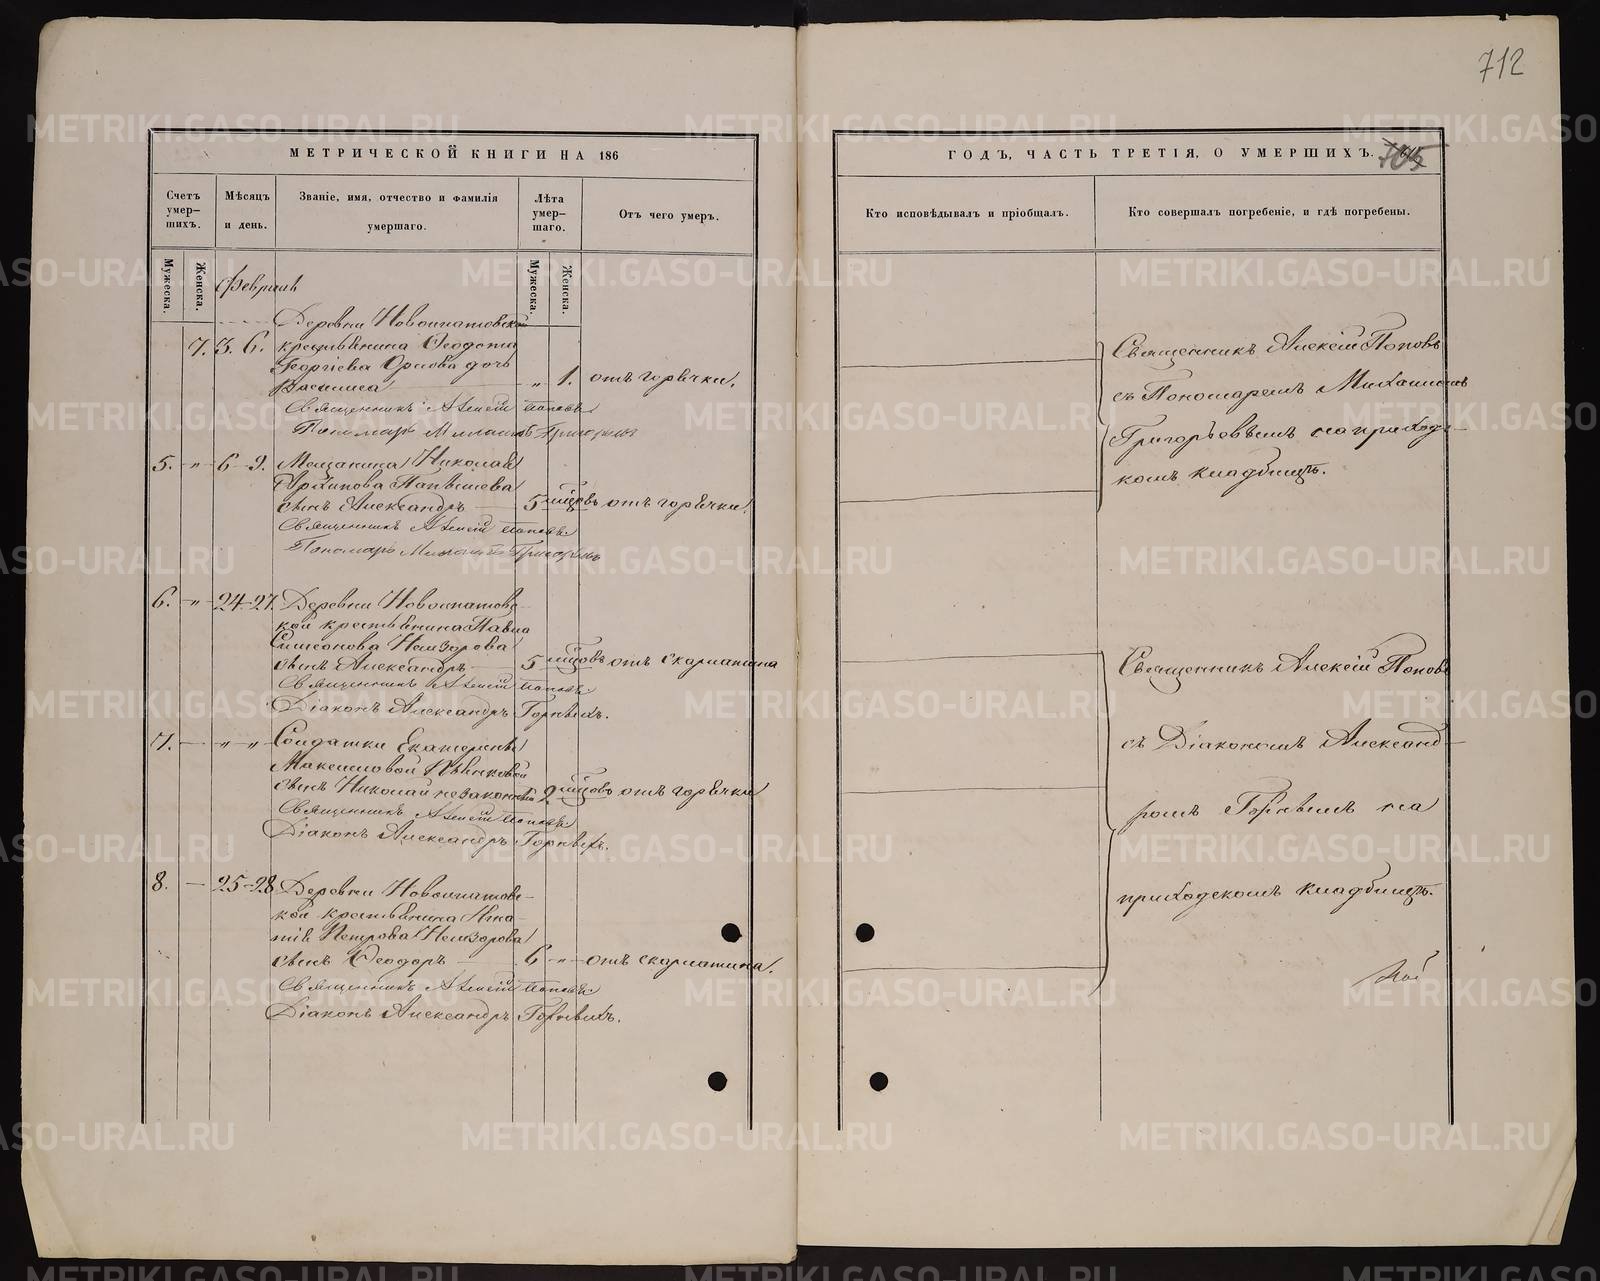 712
МЕТРИЧЕСКОЙ КНИГИ НА 186
ГОДЪ, ЧАСТЬ ТРЕТІЯ, О УМЕРШИХЪ.
705
Счетъ умер-шихъ.
Мѣсяцъ и день.
Званіе, имя, отчество и фамилія умершаго.
Лѣта умер-шаго.
Отъ чего умеръ.
Кто исповѣдывалъ и пріобщалъ.
Кто совершалъ погребеніе, и гдѣ погребены.
Мужеска.
Женска.
Мужеска.
Женска.
Февраль
Деревни Новоипатовской
7. 3. 6. крестьянина Ѳеодота
Георгіева Орлова дочь
Василиса „ 1. отъ горячки.
Священникъ Алексій Поповъ
Пономарь Михаилъ Григорьевъ
5. „ 6 9. Мещанина Николая
Архипова
сынъ Александръ 5 мѣсцовъ отъ горячки.
Священникъ Алексій Поповъ
Пономарь Михаилъ Григорьевъ
6. „ 24-27. Деревни Новоипатовс-
кой крестьянина Павла
Симеонова Немзорова
сынъ Александръ 5 мѣсцовъ отъ скарлатина
Священникъ Алексій Поповъ
Діаконъ Александръ Горныхъ.
7. „ „ Солдатки Екатерины
Максимовой
сынъ Николай незаконный 2 мѣсцовъ отъ горячки
Священникъ Алексій Поповъ
Діаконъ Александръ Горныхъ.
8. 25-28 Деревни Новоипатовс-
кой крестьянина Игна-
тія Петрова Немзорова
сынъ Ѳеодоръ 6 „ отъ скарлатина.
Священникъ Алексій Поповъ
Діаконъ Александръ Горныхъ.
Священникъ Алексій Поповъ
съ Пономаремъ Михаиломъ
Григорьевымъ на приходс-
комъ кладбищѣ.
Священникъ Алексій Поповъ
съ Діакономъ Александ-
ромъ Горнымъ на
приходскомъ кладбищѣ.
METRIKI.GASO-URAL.RU